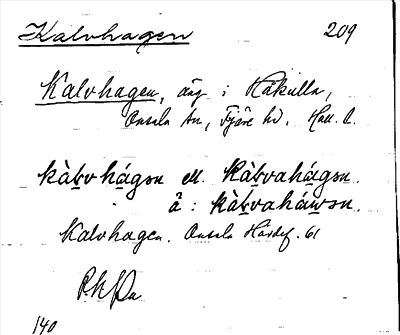 Kalvhagen 209
Kalvhagen, äng i Håkulla,
Onsala sn, Fjäre hd. Hall. l.
kàɫvhágən el. kàɫvahágən.
å : kàɫvaháwən.
Kalvhagen. Onsala Häradsf. 61
140